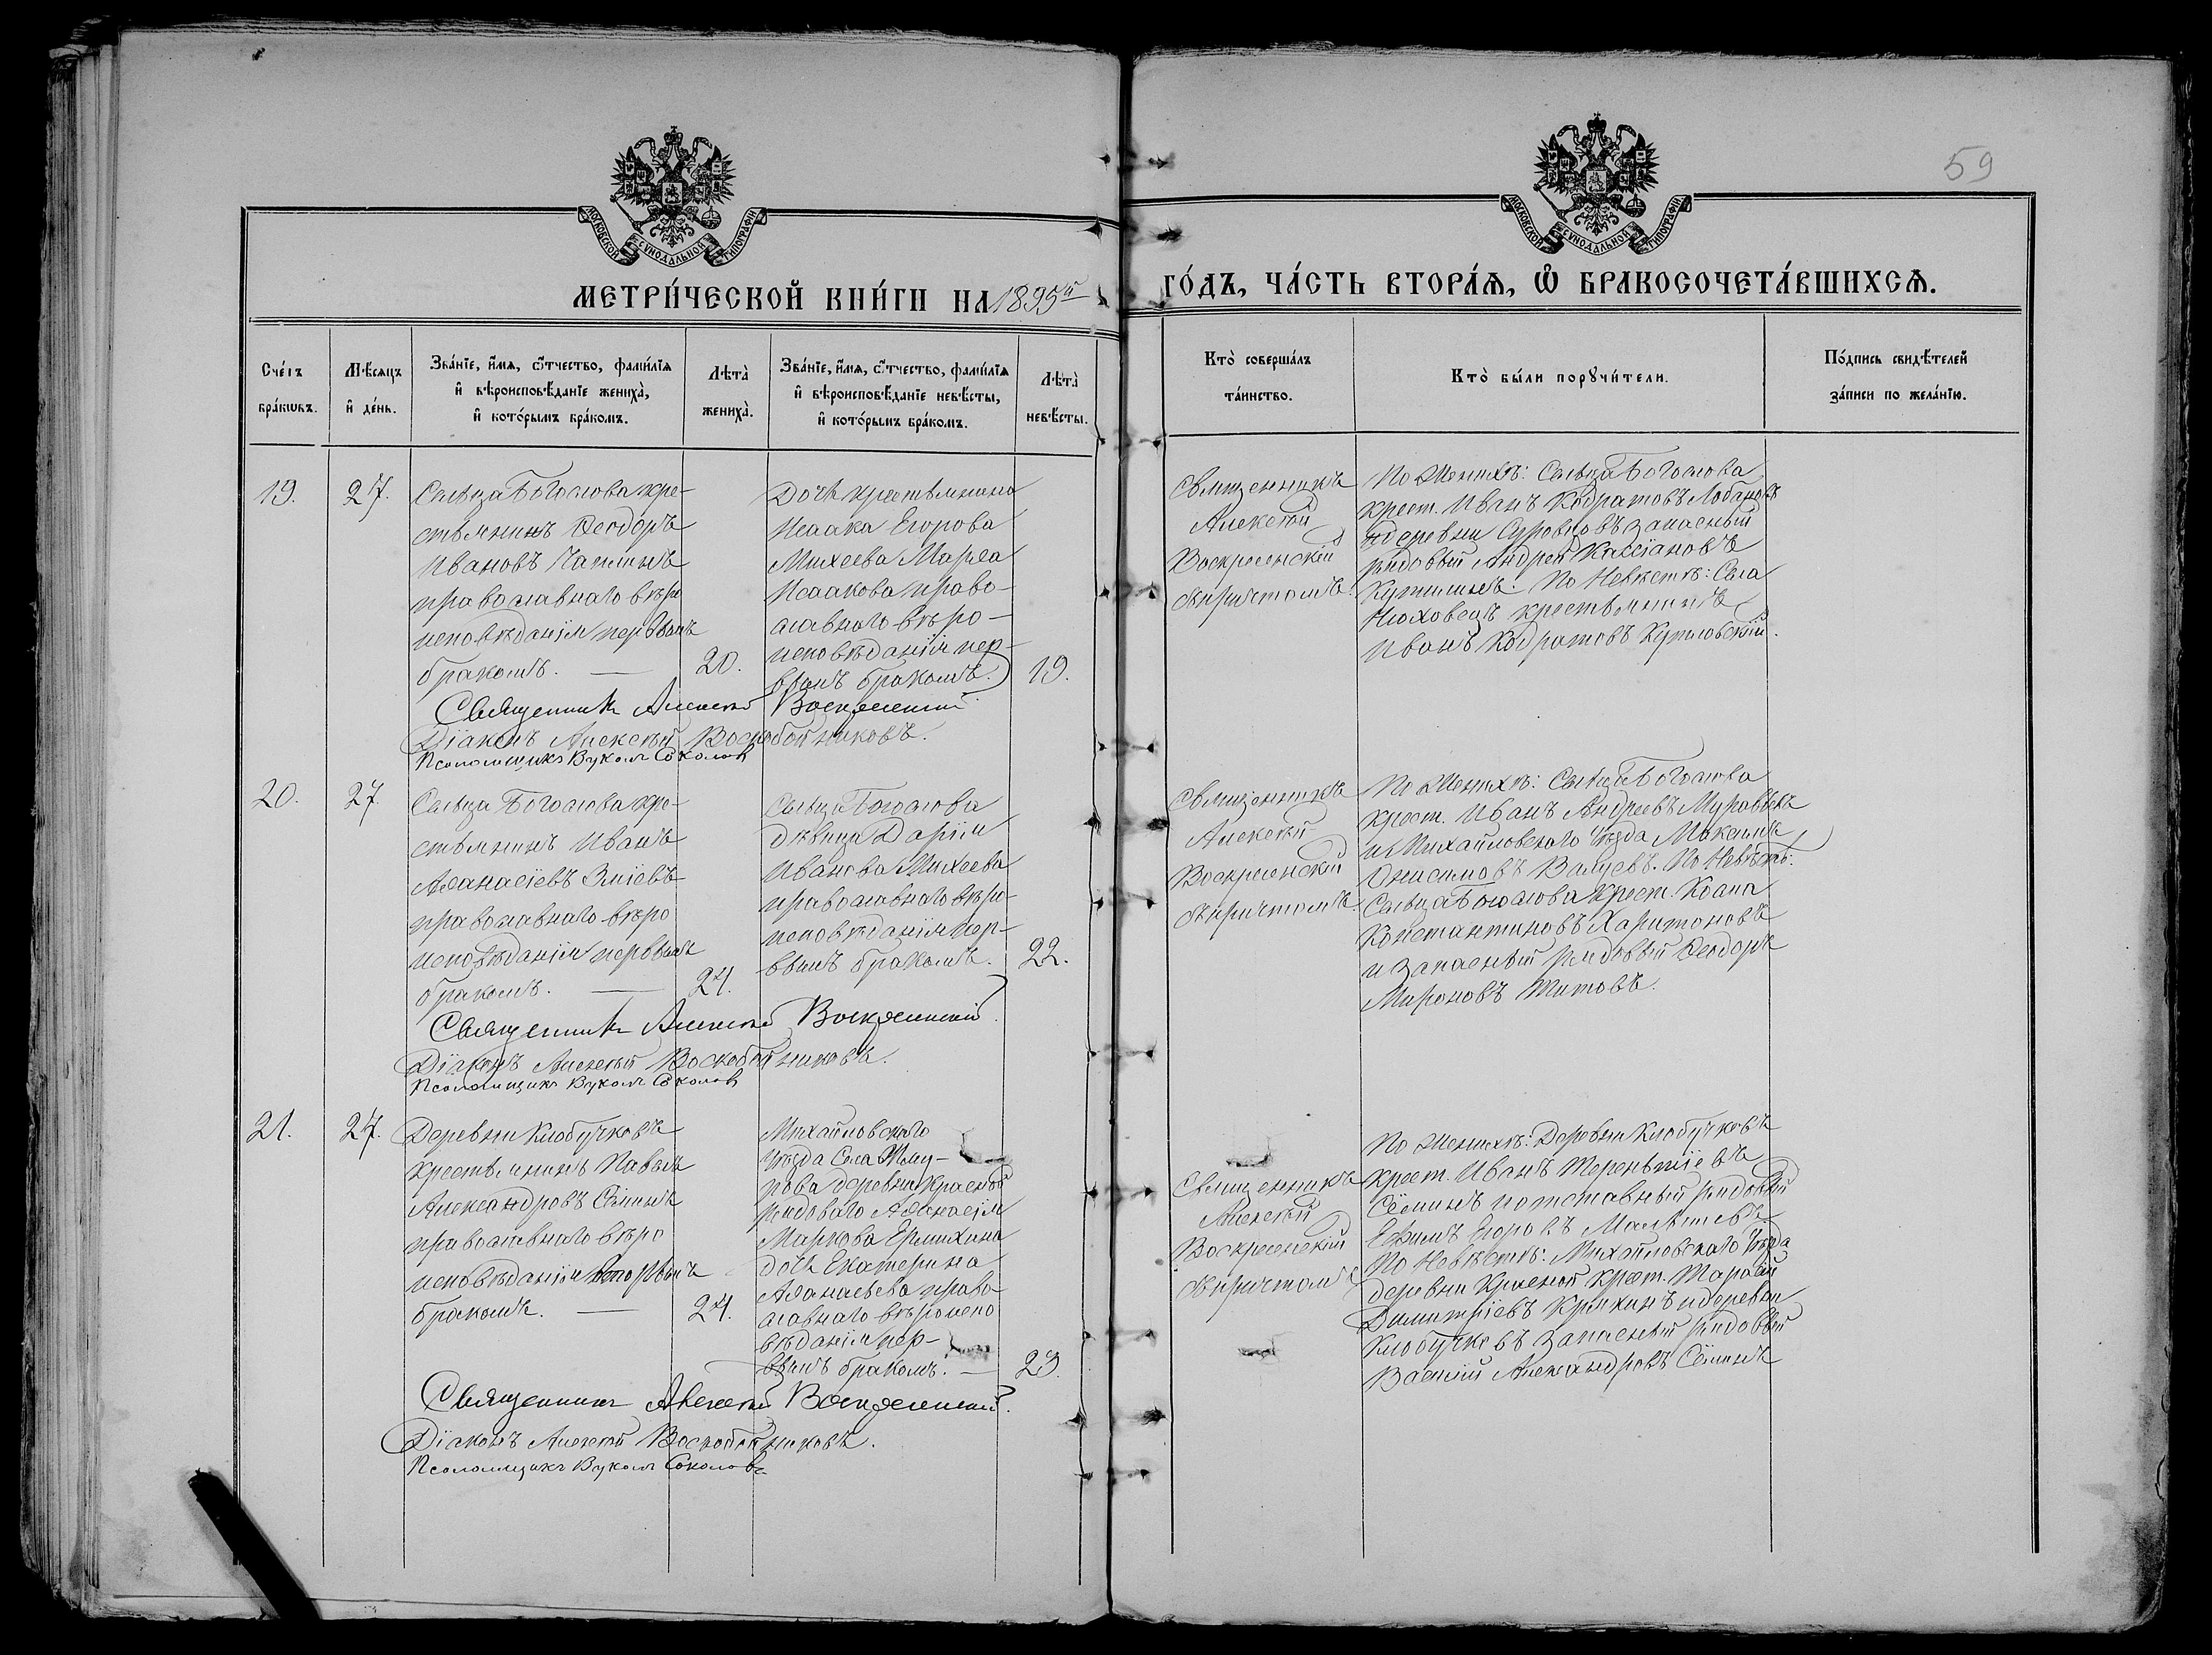 59
МОСКОВСКОЙ СѴНОДАЛЬНОЙ ТИПОГРАФІИ
МОСКОВСКОЙ СѴНОДАЛЬНОЙ ТИПОГРАФІИ
МЕТРИ́ЧЕСКОЙ КНИ́ГИ НА 1895й ГО́ДЪ, ЧА́СТЬ ВТОРА́Я, Ѡ҆ БРАКОСОЧЕТА́ВШИХСЯ.
Сче́тъ
бра́кѡвъ.
Мѣ́сяцъ
и҆ де́нь.
Зва́нїе, и҆́мя, ѻ҆́тчество, фами́лїя
и҆ вѣроисповѣ́данїе жениха̀,
и҆ кото́рымъ бра́комъ.
Лѣта̀
жениха̀.
Зва́нїе, и҆́мя, ѻ҆́тчество, фами́лїя
и҆ вѣроисповѣ́данїе невѣ́сты,
и҆ кото́рымъ бра́комъ.
Лѣта̀
невѣ́сты.
Кто̀ соверша́лъ
та́инство.
Кто̀ бы́ли порꙋчи́тели.
По́дпись свидѣ́телей
за́писи по жела́нїю.
19.
27.
Сельца Богослова кре-
стьянинъ Ѳеодоръ
Ивановъ
православнаго вѣро
исповѣданія первымъ
бракомъ. —
20.
Дочь крестьянина
Исаака Егорова
Михеева Марѳа
Исаакова право-
славнаго вѣро-
исповѣданія пер-
вымъ бракомъ.
19.
Священникъ
Алексѣй
Воскресенскій
съ причтомъ.
По Женихѣ: Сельца Богослова
крест. Иванъ Кодратовъ Лобановъ
и деревни Суровцовъ запасный
рядовый Андрей Кассіановъ
По Невѣстѣ: Села
Нюховецъ крестьянинъ
Иванъ Кодратовъ
Священникъ Алексѣй Воскресенскій
Діаконъ Алексѣй Воскобойниковъ.
Псаломщикъ Вуколъ Соколовъ
20.
27
Сельца Богослова кре-
стьянинъ Иванъ
Аѳанасіевъ Зміевъ
православнаго вѣро
исповѣданія первымъ
бракомъ. —
24.
Сельца Богослова
дѣвица Дарія
Иванова Михеева
православнаго вѣро-
исповѣданія пер-
вымъ бракомъ.
22.
Священникъ
Алексѣй
Воскресенскій
съ причтомъ.
По Женихѣ: Сельца Богослова
крест. Иванъ Андреевъ Муравьевъ
и Михайловскаго Уѣзда Максимъ
Онисимовъ По Невѣстѣ:
Сельца Богослова крест. Косма
Константиновъ Харитоновъ
и запасный рядовый Ѳеодоръ
Мироновъ Титовъ.
Священникъ Алексѣй Воскресенскій
Діаконъ Алексѣй Воскобойниковъ.
Псаломщикъ Вуколъ Соколовъ
21.
27.
Деревни Клобучковъ
крестьянинъ Павелъ
Александровъ Сёминъ
православнаго вѣро
исповѣданія вторымъ
бракомъ. —
24.
Михайловскаго
Уѣзда Села Жму-
рова деревни Красной
рядоваго Аѳанасія
Маркова Ермихина
дочь Екатерина
Аѳанасьева право-
славнаго вѣроиспо
вѣданія пер-
вымъ бракомъ. —
23.
Священникъ
Алексѣй
Воскресенскій
съ причтомъ
По Женихѣ: Деревни Клобучковъ
крест. Иванъ Терентіевъ
Сёминъ и отставный рядовый
Ефимъ Егоровъ
По Невѣстѣ: Михайловскаго Уѣзда
деревни Красной крест. Тарасій
Димитріевъ и деревни
Клобучковъ запасный рядовый
Василій Александровъ Сёминъ
Священникъ Алексѣй Воскресенскій.
Діаконъ Алексѣй Воскобойниковъ.
Псаломщикъ Вуколъ Соколовъ